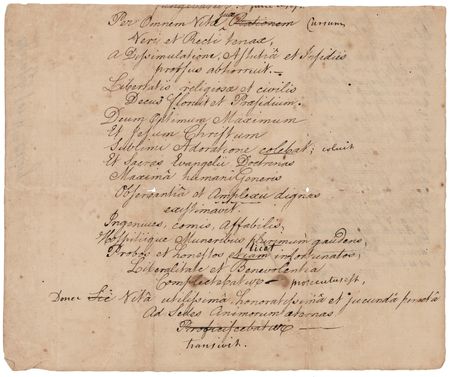 Per Omnem Vitæ suæ Rationem Cursum
Veri, et Recti tenax,
a Dissimulatione, Astutiâ et Insidiis
prorsus abhorruit.—
Libertatis religiosæ et civilis
Decus floruit et Præsidium.
Deum Optimum Maximum
Et Jesum Christum
Sublimi Adoratione colebat; coluit
Et Sacras Evangelii Doctrinas
Maximâ humani Generis
Observantiâ et Amplexu dignas
existimavit.
Ingenuus, comis, affabilis,
Hospitiique Muneribus plurimum gaudens,
Probos et honestos etiam licet infortunatos,
Liberalitate et Benevolentia
Complectebatur — prosecutus est,
Donec Sic Vitâ utilissimâ honoratissimâ et jucundâ peractâ
Ad Sedes Animorum æternas
Proficiscebatur —
transivit.